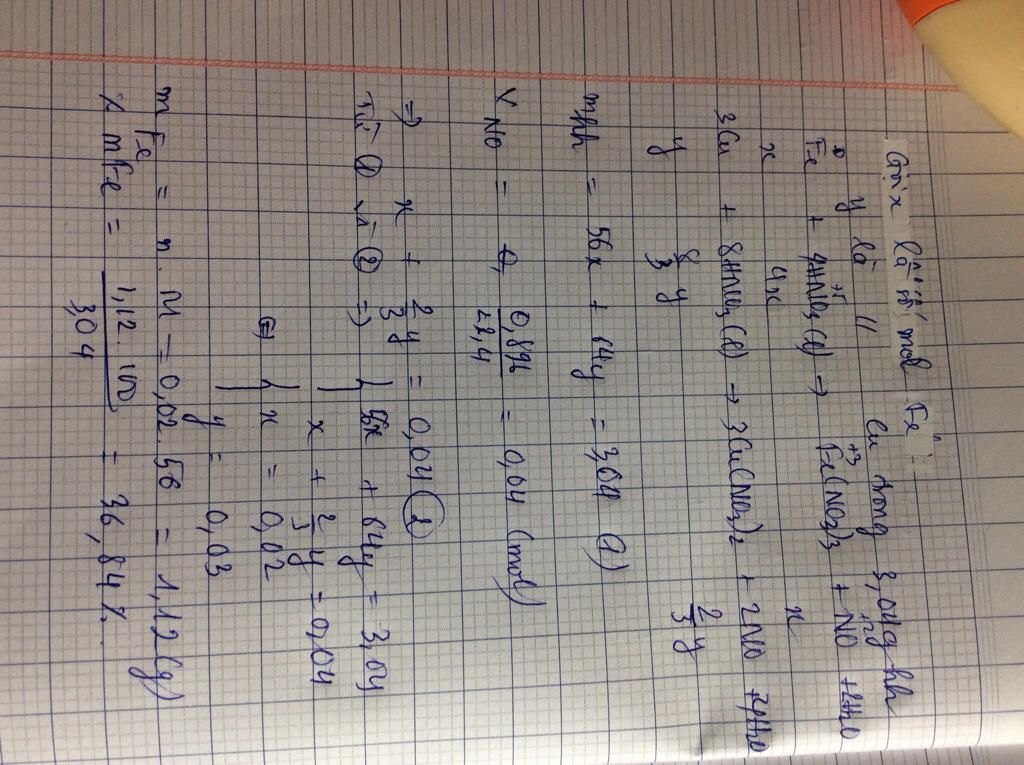 Gọi x là số mol Fe
y là " Cu trong 3,04g hh
0 +5 +3 +2
Fe + 4HNO3(l) → Fe(NO3)3 + NO + 2H2O
x 4x x
3Cu + 8HNO3(l) → 3Cu(NO3)2 + 2NO + 4H2O
y 8/3 y 2/3 y
mhh = 56x + 64y = 3,04 (1)
VNO = 0,896/22,4 = 0,04 (mol)
=> x + 2/3 y = 0,04 (2)
Từ (1) và (2) => { 56x + 64y = 3,04
x + 2/3 y = 0,04
<=> { x = 0,02
y = 0,03
mFe = n.M = 0,02.56 = 1,12(g)
% mFe = 1,12.100/3,04 = 36,84%.